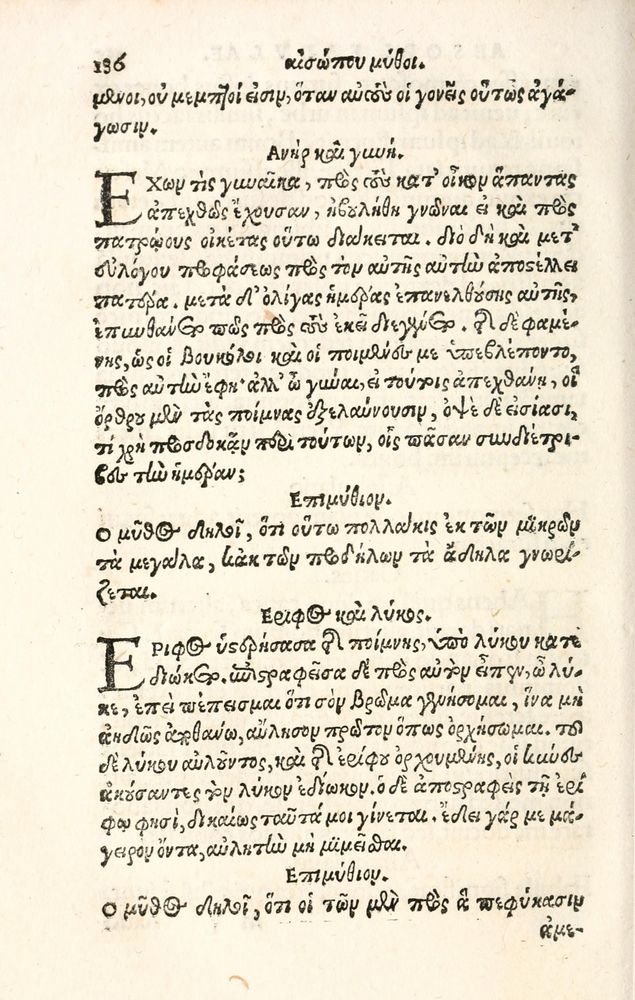 136 αἰσώπου μῦθοι.
μενοι, οὐ μεμπτοί εἰσιν, ὅταν αὐτοὺς οἱ γονεῖς οὕτως ἀγά-
γωσιν.
Ανὴρ καὶ γυνή.
ΕΧων τὶς γυναῖκα, πρὸς τοὺς κατ' οἶκον ἅπαντας
ἀπεχθῶς ἔχουσαν, ἠβουλήθη γνῶναι εἰ καὶ πρὸς
πατρῴους οἰκέτας οὕτω διάκειται. διὸ δὴ καὶ μετ'
εὐλόγου προφάσεως πρὸς τὸν αὐτῆς αὐτὴν ἀποστέλλει
πατέρα. μετὰ δ' ὀλίγας ἡμέρας ἐπανελθούσης αὐτῆς,
ἐπυνθάνετο πῶς πρὸς τοὺς ἐκεῖ διεγένετο. τῆς δὲ φαμέ-
νης, ὡς οἱ βουκόλοι καὶ οἱ ποιμένες με ὑπεβλέποντο,
πρὸς αὐτὴν ἔφη· ἀλλ' ὦ γύναι, εἰ τούτοις ἀπεχθάνῃ, οἳ
ὄρθρου μὲν τὰς ποίμνας ἐξελαύνουσιν, ὀψὲ δὲ εἰσίασι,
τί χρὴ προσδοκᾷν περὶ τούτων, οἷς πᾶσαν συνδιέτρι-
βες τὴν ἡμέραν;
Επιμύθιον.
Ο μῦθος δηλοῖ, ὅτι οὕτω πολλάκις ἐκ τῶν μικρῶν
τὰ μεγάλα, κἀκ τῶν προδήλων τὰ ἄδηλα γνωρί-
ζεται.
Εριφος καὶ λύκος.
ΕΡιφος ὑστρήσασα τῆς ποίμνης, ὑπὸ λύκου κατε
διώκετο. ἐπιστραφεῖσα δὲ πρὸς αὐτὸν εἶπεν, ὦ λύ-
κε, ἐπεὶ πέπεισμαι ὅτι σὸν βρῶμα γενήσομαι, ἵνα μὴ
ἀηδῶς ἀποθάνω, αὔλησον πρῶτον ὅπως ὀρχήσωμαι. τοῦ
δὲ λύκου αὐλοῦντος, καὶ τῆς ἐρίφου ὀρχουμένης, οἱ κύνες
ἀκούσαντες τὸν λύκον ἐδίωκον. ὁ δὲ ἀποστραφεὶς τῇ ἐρί
φῳ φησὶ, δικαίως ταῦτά μοι γίνεται. ἔδει γάρ με μά-
γειρον ὄντα, αὐλητὴν μὴ μιμεῖσθαι.
Επιμύθιον.
Ο μῦθος δηλοῖ, ὅτι οἱ τῶν μὲν πρὸς ἃ πεφύκασιν
ἀμε-